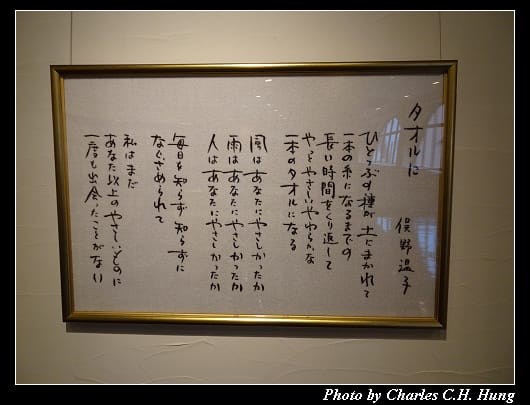 タオルに
俣野温子
ひとつぶの種が土にまかれて
一本の糸になるまでの
長い時間をくり返して
やっとやさしいやわらかな
一本のタオルになる
風はあなたにやさしかったか
雨はあなたにやさしかったか
人はあなたにやさしかったか
毎日を知らず知らずに
なぐさめられて
私はまだ
あなた以上のやさしいものに
一度も出会ったことがない
Photo by Charles C.H. Hung